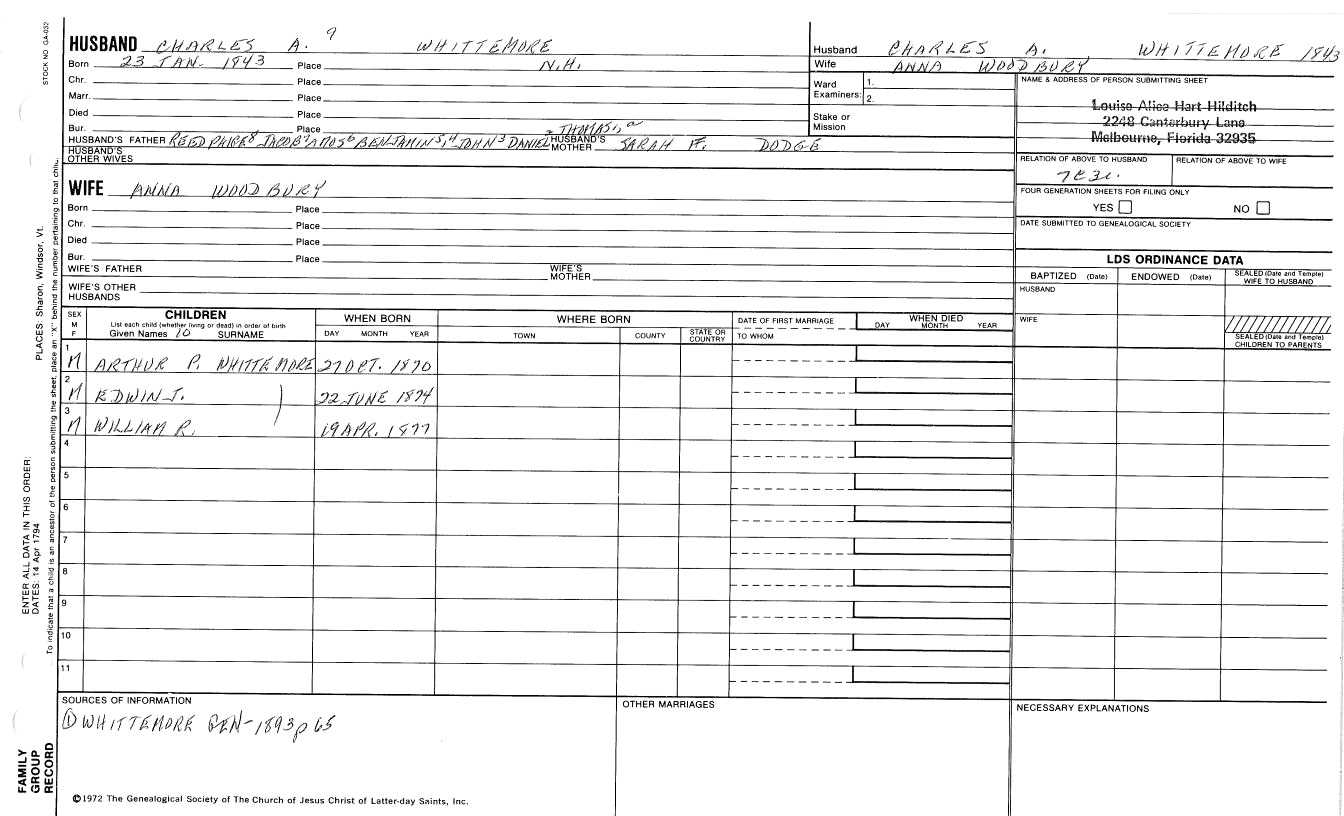 STOCK NO GA-032
HUSBAND CHARLES A. 9 WHITTEMORE
Born 23 JAN. 1843 Place N.H.
Chr. Place
Marr. Place
Died Place
Bur. Place
HUSBAND'S FATHER REED PAIGE8 JACOB7 AMOS6 BENJAMIN5,4 JOHN3 DANIEL2 THOMAS1,a HUSBAND'S MOTHER SARAH F. DODGE
HUSBAND'S OTHER WIVES
Husband CHARLES A. WHITTEMORE 1843
Wife ANNA WOODBURY
Ward Examiners: 1. 2.
Stake or Mission
NAME & ADDRESS OF PERSON SUBMITTING SHEET
Louise Alice Hart Hilditch
2248 Canterbury Lane
Melbourne, Florida 32935
RELATION OF ABOVE TO HUSBAND RELATION OF ABOVE TO WIFE
7C3r.
FOUR GENERATION SHEETS FOR FILING ONLY
YES NO
DATE SUBMITTED TO GENEALOGICAL SOCIETY
WIFE ANNA WOODBURY
Born Place
Chr. Place
Died Place
Bur. Place
WIFE'S FATHER WIFE'S MOTHER
WIFE'S OTHER HUSBANDS
LDS ORDINANCE DATA
BAPTIZED (Date) ENDOWED (Date) SEALED (Date and Temple) WIFE TO HUSBAND
HUSBAND
WIFE
SEALED (Date and Temple) CHILDREN TO PARENTS
SEX M F
CHILDREN
List each child (whether living or dead) in order of birth
Given Names 10 SURNAME
WHEN BORN
DAY MONTH YEAR
WHERE BORN
TOWN COUNTY STATE OR COUNTRY
DATE OF FIRST MARRIAGE
TO WHOM
WHEN DIED
DAY MONTH YEAR
1 M ARTHUR P. WHITTEMORE 27 OCT. 1870
2 M EDWIN J. 22 JUNE 1874
3 M WILLIAM R. 19 APR. 1877
4
5
6
7
8
9
10
11
SOURCES OF INFORMATION
① WHITTEMORE GEN-1893 p 65
OTHER MARRIAGES
NECESSARY EXPLANATIONS
©1972 The Genealogical Society of The Church of Jesus Christ of Latter-day Saints, Inc.
FAMILY
GROUP
RECORD
ENTER ALL DATA IN THIS ORDER:
DATES: 14 Apr 1794 PLACES: Sharon, Windsor, Vt.
To indicate that a child is an ancestor of the person submitting the sheet, place an "X" behind the number pertaining to that child.